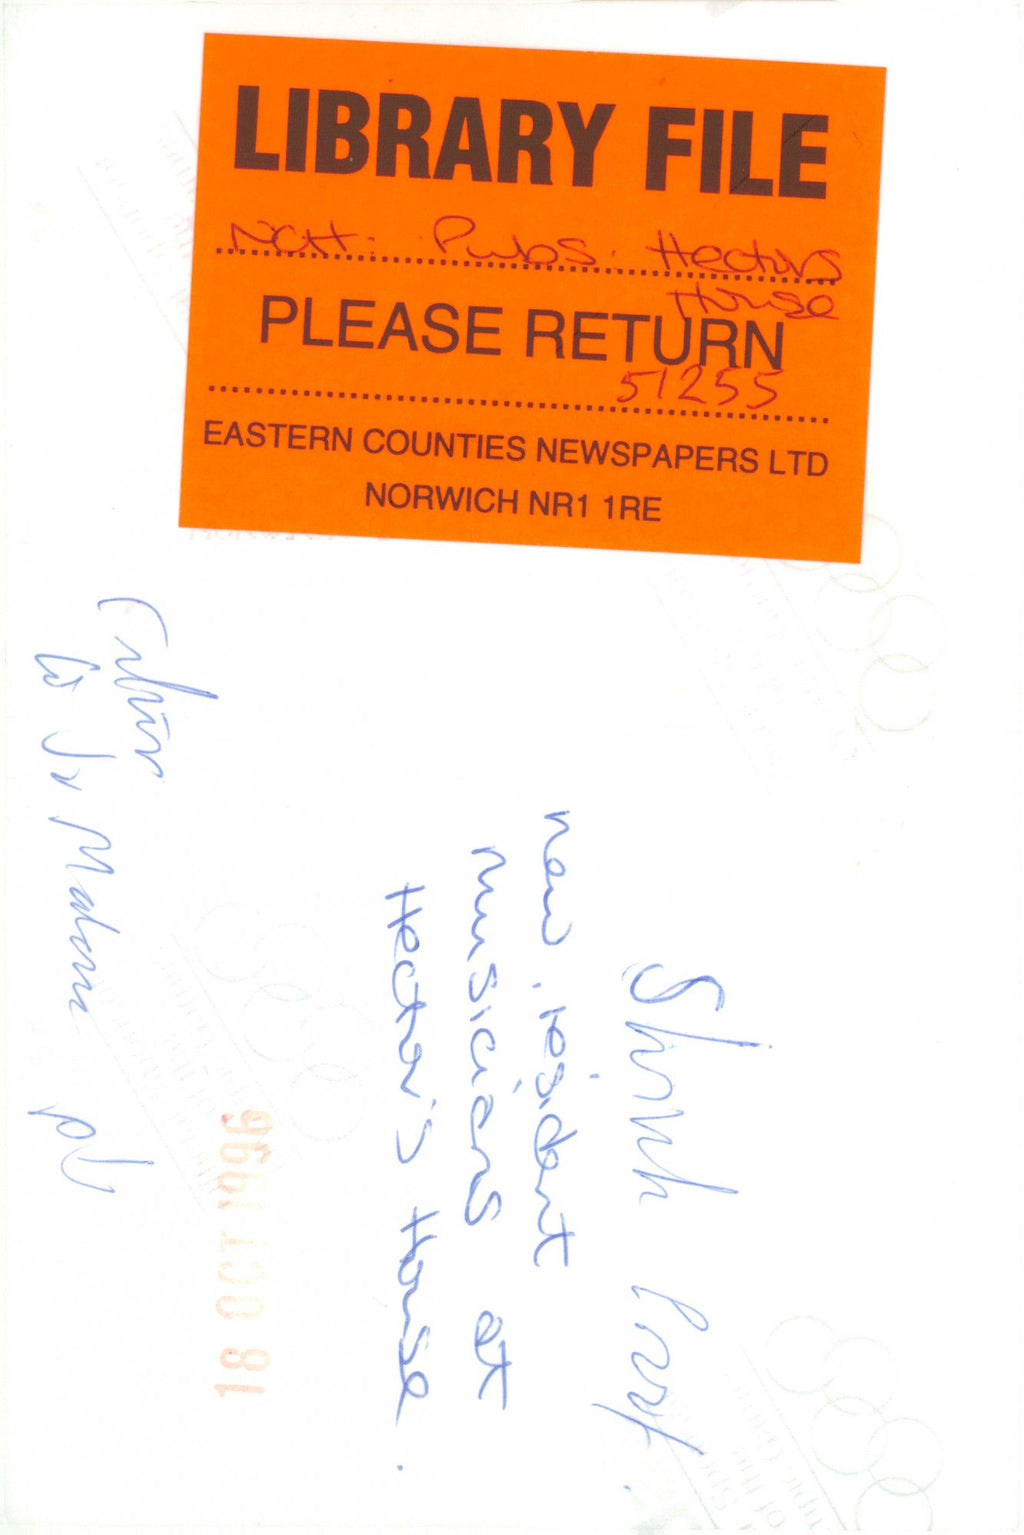 LIBRARY FILE
NCH: Pubs. Hectors
House
PLEASE RETURN
51255
EASTERN COUNTIES NEWSPAPERS LTD
NORWICH NR1 1RE
Shrink Proof.
new resident
musicians at
Hector's House.
18 OCT 1996